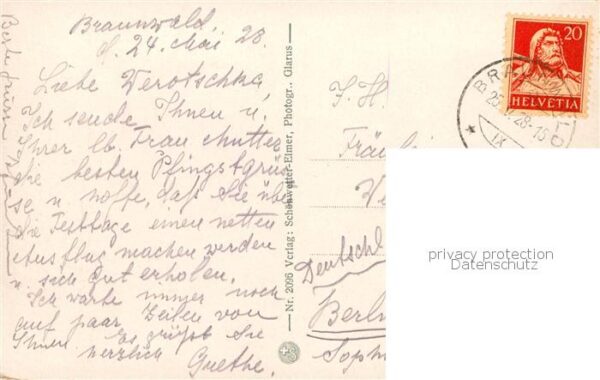 Braunwald,
d. 24. Mai 28.
Liebe Werotschka,
Ich sende Ihnen u.
Ihrer lb. Frau Mutter
die besten Pfingstgrüs
se u. hoffe, daß Sie über
die Festtage einen netten
Ausflug machen werden
u. sich gut erholen.
Ich warte immer noch
auf paar Zeilen von
Ihnen. Es grüßt Sie
herzlich Goethe.
Beste Grüsse
Nr. 2096 Verlag: Schönwetter-Elmer, Photogr., Glarus
20
HELVETIA
BRAUNWALD
25.V.28-16
IX
F. H.
Fräulei
We
Deutschl
Berlin
Soph
privacy protection
Datenschutz